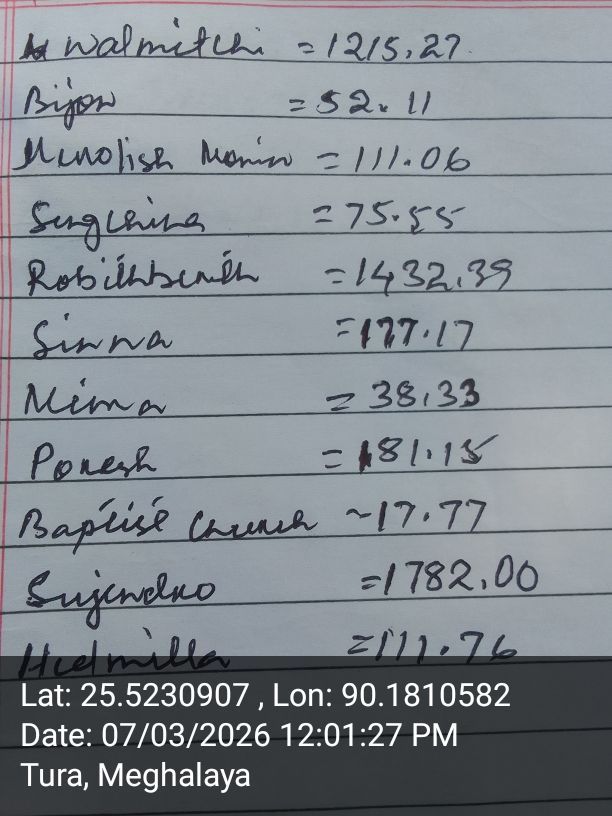 Walmitchi = 1215.27
Bijon = 52.11
Menolish Momin = 111.06
Sengchina = 75.55
Robithbirth = 1432.39
Sinna = 177.17
Nima = 38.33
Poresh = 181.15
Baptist Church ~ 17.77
Sujendro = 1782.00
Hudmilla = 111.76
Lat: 25.5230907 , Lon: 90.1810582
Date: 07/03/2026 12:01:27 PM
Tura, Meghalaya